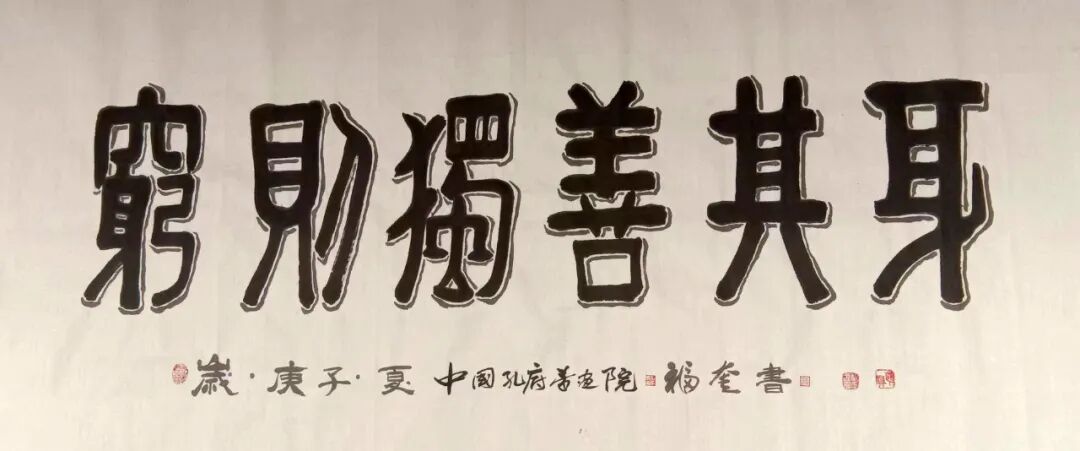 窮則獨善其身
歲·庚子·夏 中國孔府书画院 福奎書